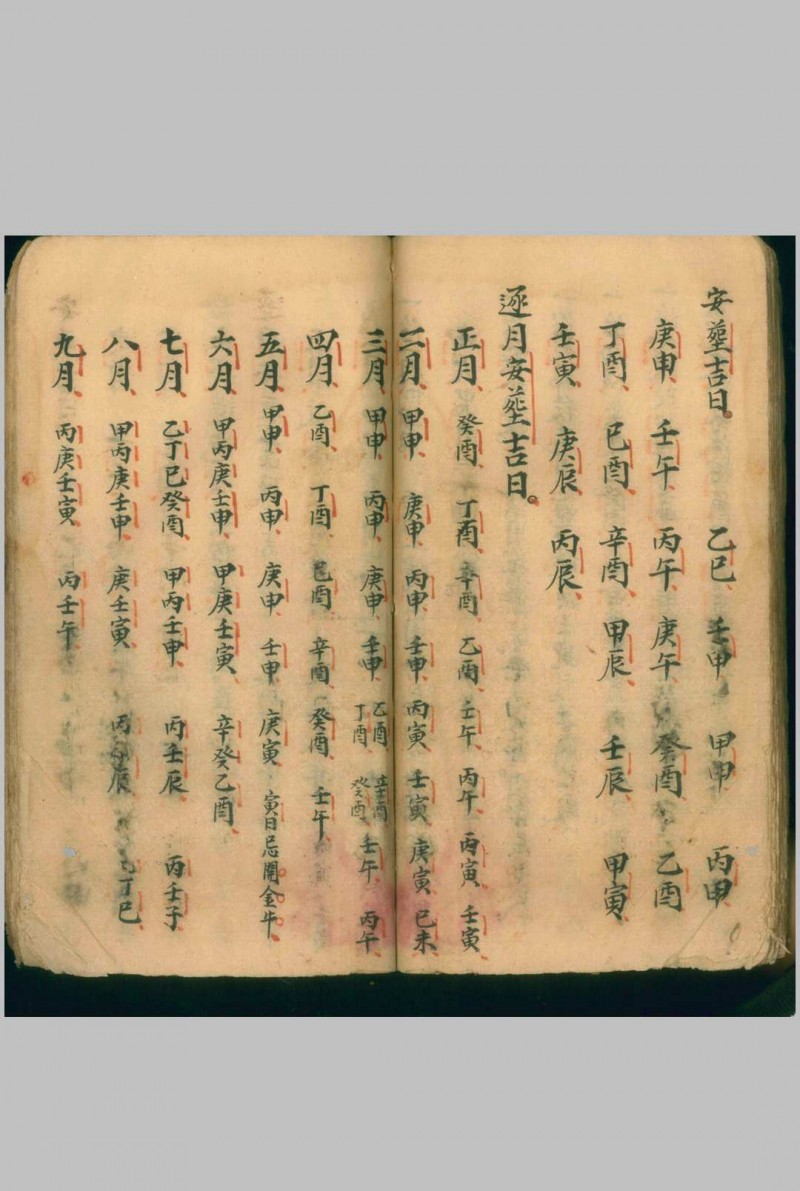 安塟吉日。 乙巳 壬申 甲申 丙申
庚申 壬午 丙午 庚午 癸酉 乙酉
丁酉 巳酉 辛酉 甲辰 壬辰 甲寅
壬寅 庚辰 丙辰
逐月安塟吉日。
正月 癸酉 丁酉 辛酉 乙酉 壬午 丙午 丙寅 壬寅
二月 甲申 庚申 丙申 壬申 丙寅 壬寅 庚寅 巳未
三月 甲申 丙申 庚申 壬申 乙酉 丁酉 辛酉 癸酉 壬午 丙午
四月 乙酉 丁酉 巳酉 辛酉 癸酉 壬午
五月 甲申 丙申 庚申 壬申 庚寅 寅日忌開金牛
六月 甲丙庚壬申 甲庚壬寅 辛癸乙酉
七月 乙丁巳癸酉 甲丙壬申 丙壬辰 丙壬子
八月 甲丙庚壬申 庚壬寅 丙 辰 丁巳
九月 丙庚壬寅 丙壬午